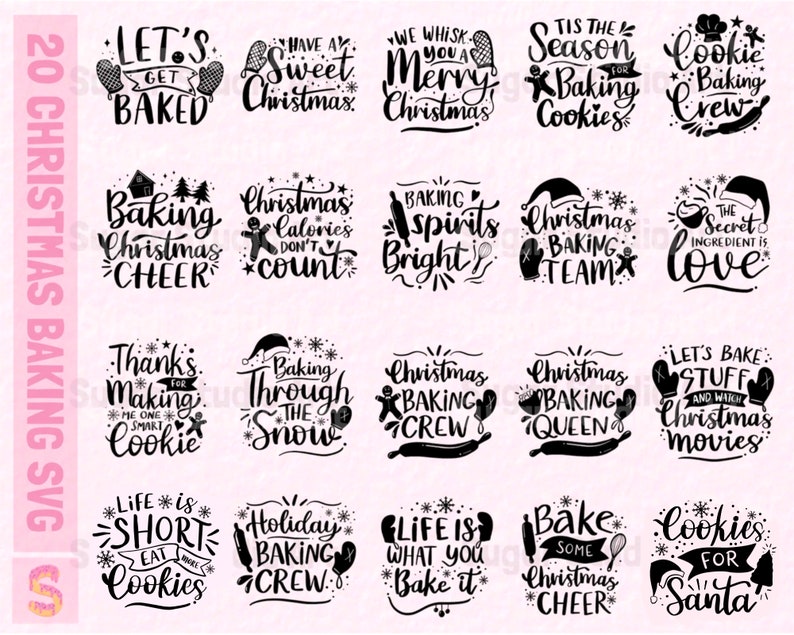 20 CHRISTMAS BAKING SVG
S
LET'S
GET
BAKED
HAVE A
Sweet
Christmas
WE WHISK
YOU A
Merry
Christmas
TIS THE
Season
FOR
Baking
Cookies
Cookie
Baking
Crew
Baking
Christmas
CHEER
Christmas
Calories
DON'T
count
BAKING
spirits
Bright
Christmas
BAKING
TEAM
THE
Secret
INGREDIENT IS
love
Thanks
FOR
Making
ME ONE
SMART
Cookie
Baking
Through
THE
Snow
Christmas
BAKING
CREW
Christmas
BAKING
QUEEN
LET'S BAKE
STUFF
AND WATCH
Christmas
movies
LIFE is
SHORT
EAT MORE
Cookies
Holiday
BAKING
CREW
LIFE IS
WHAT YOU
Bake it
Bake
SOME
Christmas
CHEER
Cookies
FOR
Santa